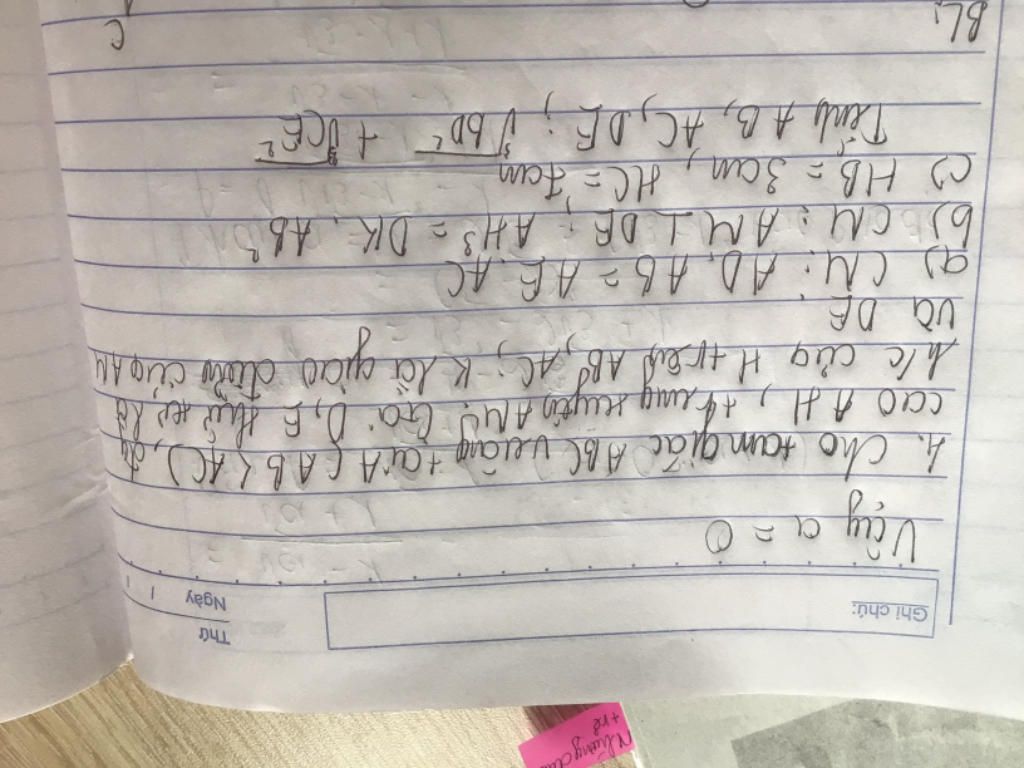 Thứ
Ngày /
Ghi chú:
Vậy a = 0
4. Cho tam giác ABC vuông tại A (AB < AC), đg
cao AH, trung tuyến AM. Gọi D, E thứ tự là
h/c của H trên AB, AC; K là giao điểm của AM
và DE
a) CM: AD. AB = AE. AC
b) CM: AM ⊥ DE; AH³ = DK. AB³
c) HB = 3cm, HC = 7cm
Tính AB, AC, DE; ∛BD² + ∛CE²
BL:
C
Những
+rễ